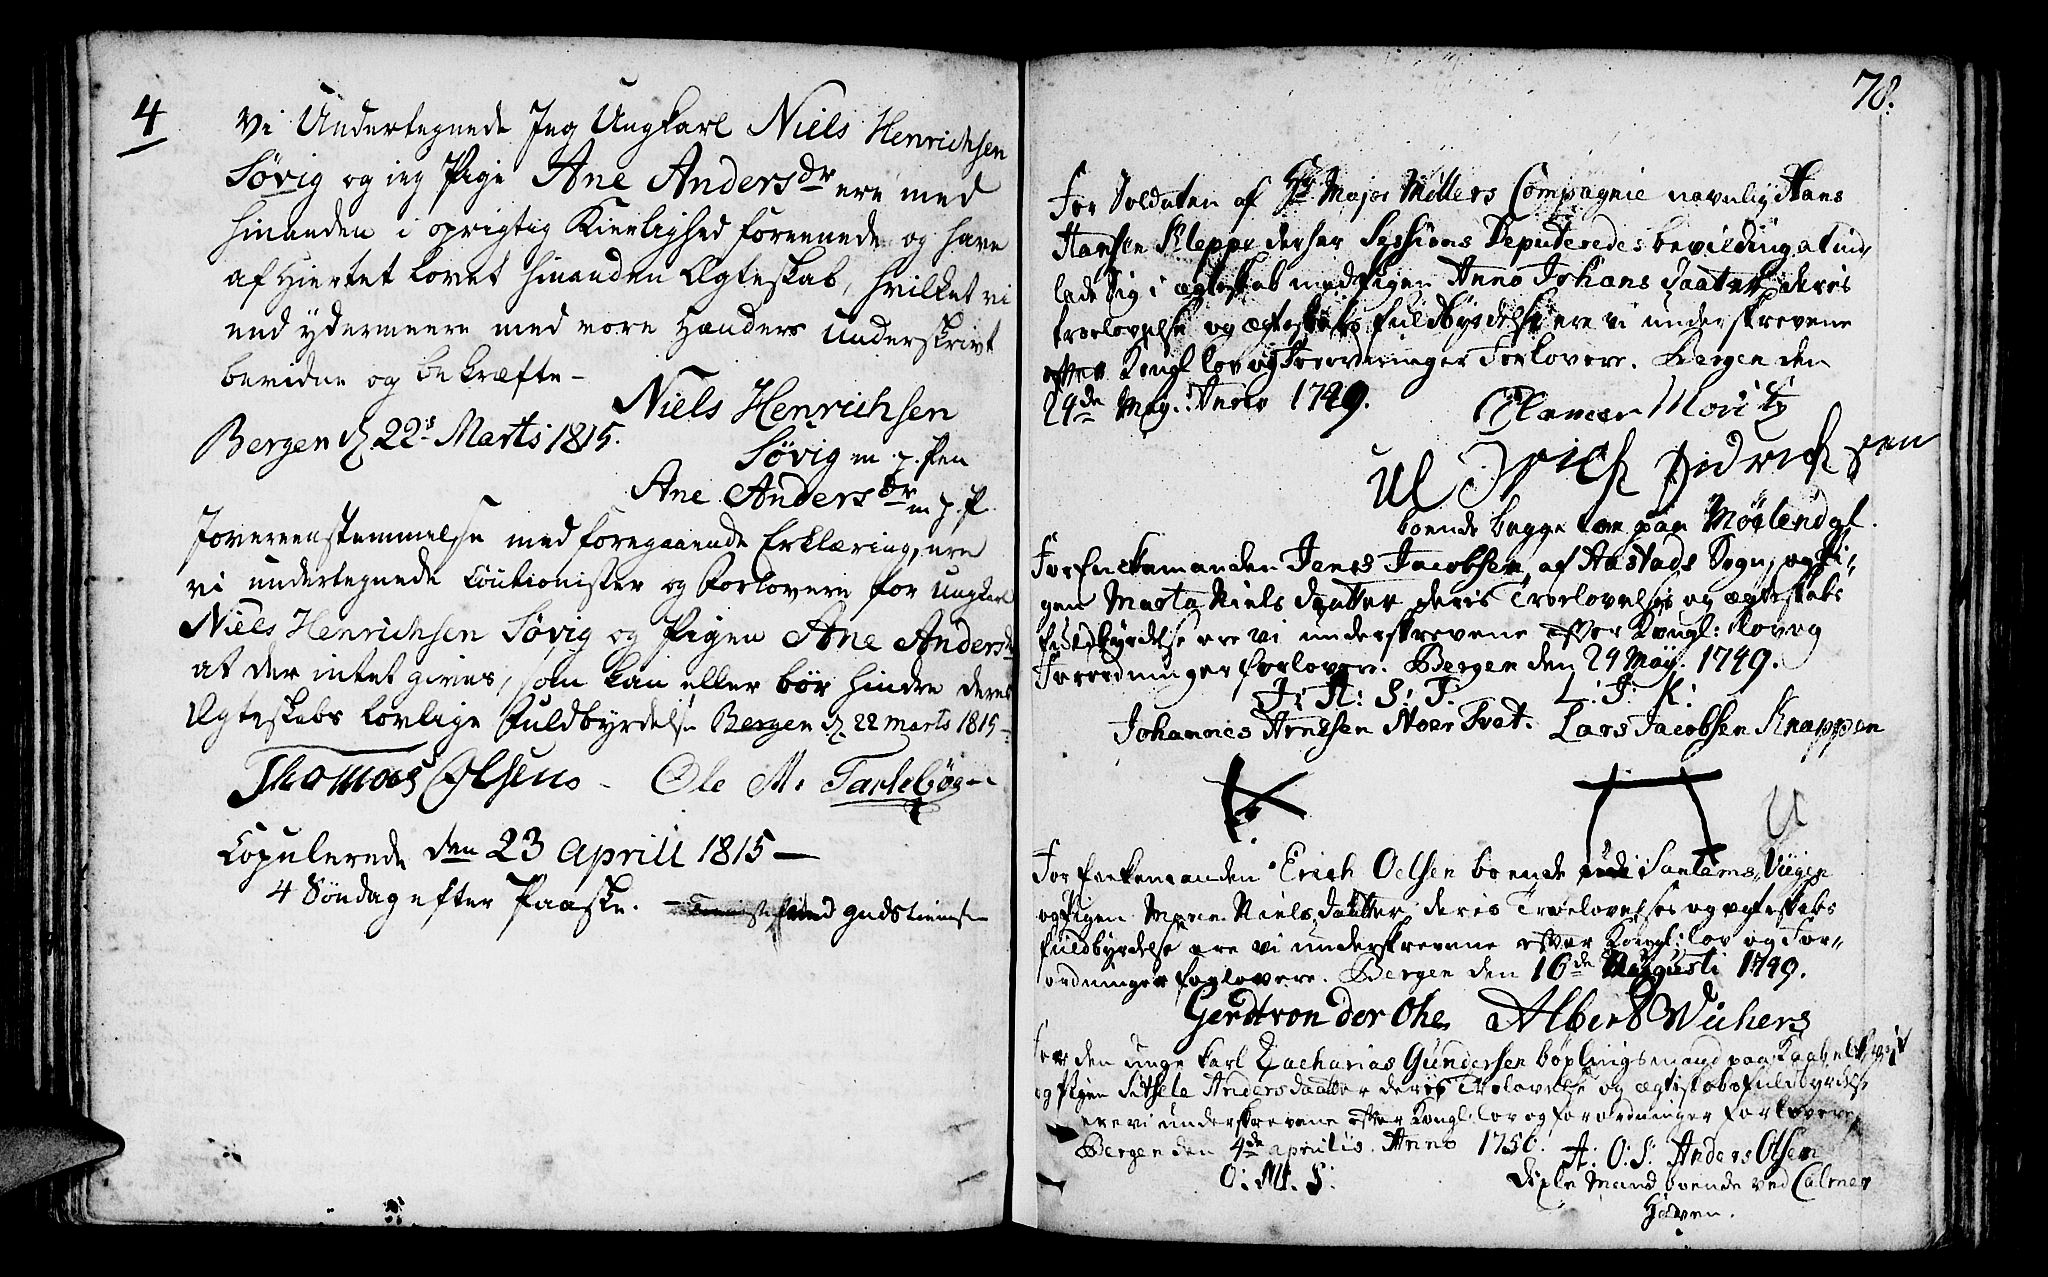 4
Vi Undertegnede Jeg Ungkarl Niels Henrichsen
Søvig og ieg Pige Ane Andersdr ere med
hinanden i oprigtig Kierlighed foreenede og have
af Hiertet lovet hinanden Ægteskab, hvilket vi
end ydermeere med vore Hænders Underskrivt
bevidne og bekræfte -
Niels Henrichsen
Bergen d. 22s Marts 1815.
Søvig m. p. Pen
Ane Andersdr m. p. P.
Jovereenstemmelse med foregaaende Erklæring, ere
vi undertegnede Coutionister og Forlovere for Ungkarl
Niels Henrichsen Søvig og Pigen Ane Andersdr
at der intet gives, som kan eller bør hindre deres
Ægteskabs lovlige Fuldbyrdelse Bergen d. 22 Marts 1815 -
Thomas Olsens - Ole M.
Copulerede den 23 Aprill 1815 -
4 Søndag efter Paaske. - med gudstieneste
78.
For Soldaten af Hr Major Møllers Compagnie navnlig Hans
Hansen Kleppe der har Sessions Deputeredes bevilding at ind-
lade sig i ægteskab med Pigen Anno Johans daatter deris
troelovelse og ægteskabs fuldbyrdelse ere vi underskrevene
efter Kongl lov og Forordninger Forlovere. Bergen den
24de May. Anno 1749.
Clamer Moritz
boende begge toe paa Møglendal.
For Enckemanden Jens Jacobsen, af Aastads Sogn, og Pi-
gen Marta Niels daatter deris Troelovelse og ægteskabs
fuldbyrdelse ere vi underskrevene efter Kongl: lov og
Forordninger forlovere. Bergen den 24 May. 1749.
J: A: S: T. L: J: K:
Johannes Arnesen Noer Tvet. Lars Jacobsen Knappen
For Enkemanden Erich Oelsen boende
og Pigen Maren Niels daatter deris Troelovelse og egteskabs
fuldbyrdelse ere vi underskrevene efter Kongl: lov og For-
ordninger forlovere. Bergen den 16de Augusti 1749.
Gerdt von der Ohe Albert Wichers
For den unge karl Zacharias Gundersen bøplingsmand paa
og Pigen Sitsele Anders daatter deris Trolovelse og ægteskabs fuldbyrdelse
ere vi underskrevene efter Kongl: lov og forordninger forlovere,
Bergen den 4de aprilis. Anno 1750. A: O: S: Anders Olsen
O: M: S:
mand boende ved Calmer
Hawen.